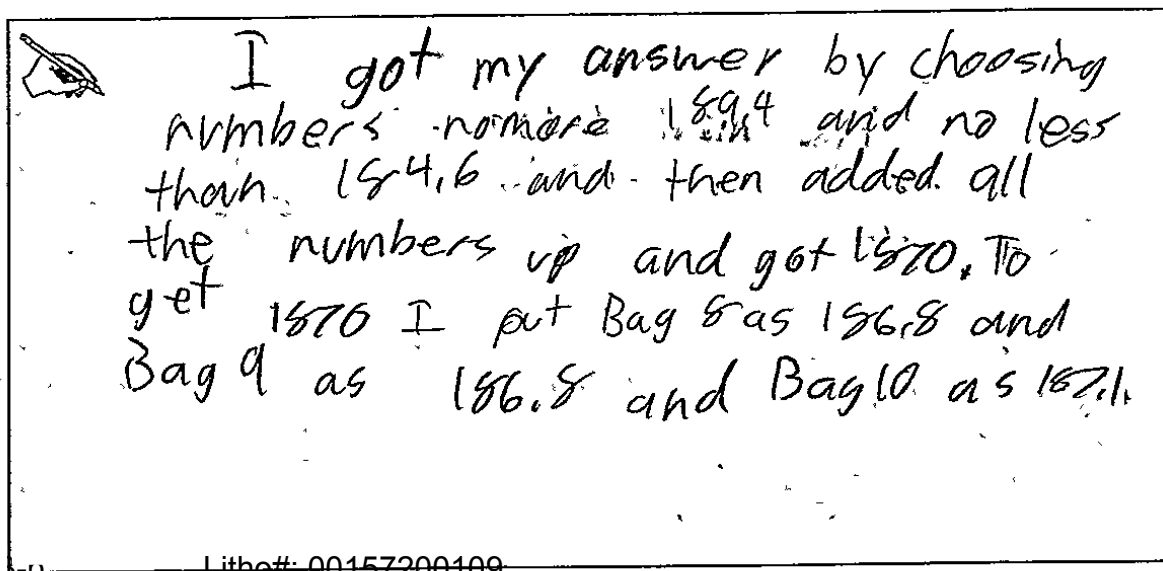 I got my answer by choosing
numbers nomore 189.4 and no less
than 184.6 and then added all
the numbers up and got 1870. To
get 1870 I put Bag 8 as 186.8 and
Bag 9 as 186.8 and Bag 10 as 187.1.
Litho#: 00157200109